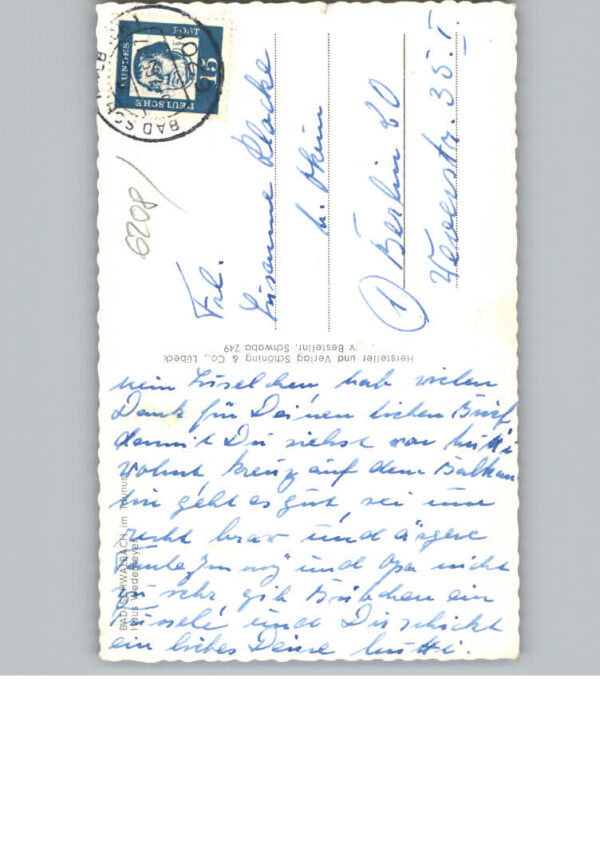 DEUTSCHE
BUNDES
POST
15
BAD SCHWALBACH
6208
Frl.
Susanne Klocke
b.
1 Berlin 20
Weverstr. 35. I
Hersteller und Verlag Schöning & Co., Lübeck
Bestellnr. Schwaba 249
BAD SCHWALBACH im Taunus
Haus Wiedemeyer
mein Suselchen, hab vielen
Dank für Deinen lieben Brief,
damit Du siehst wo Mutti
wohnt, Kreuz auf dem Balkon
geht es gut, sei
recht brav und ärgere
Tante und Opa nicht
zu sehr, gib Bübchen ein
Küssle und Dir schickt
ein liebes Deine Mutti.